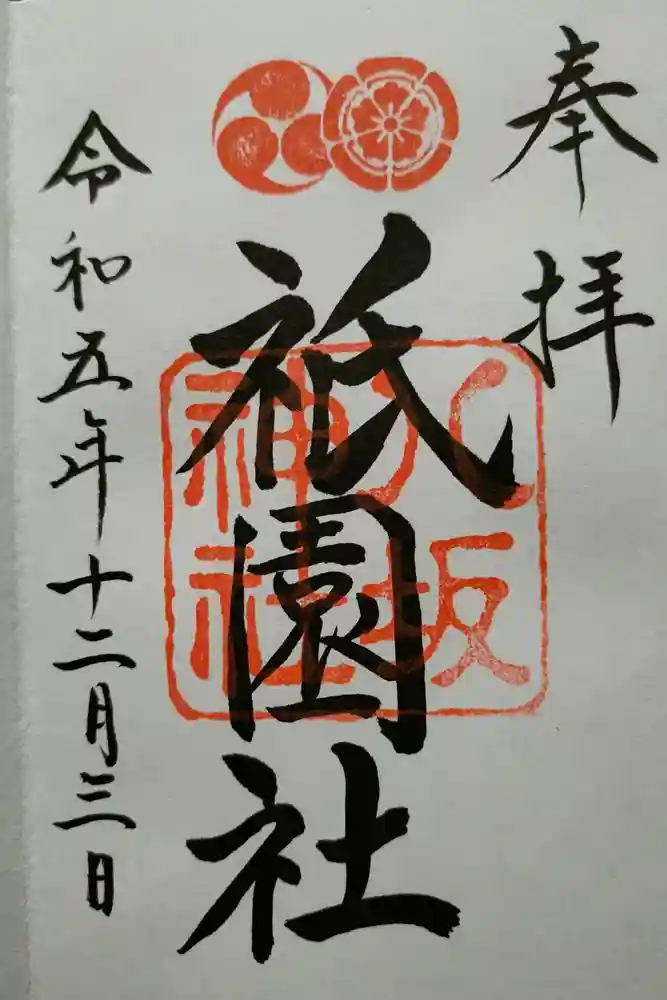 奉拝
祇園社
八坂
神社
令和五年十二月三日